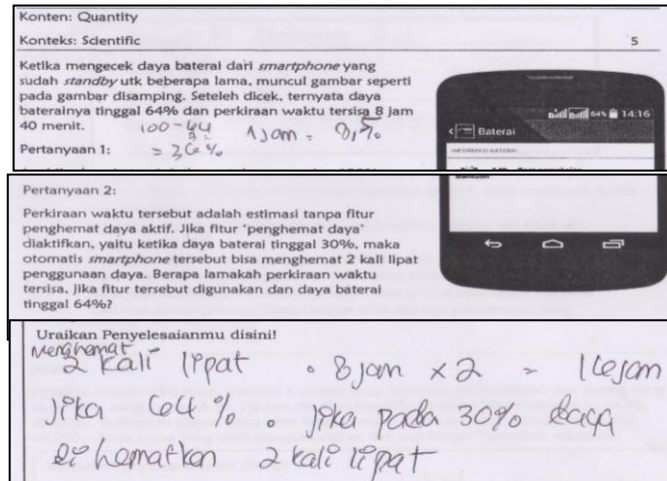 Konten: Quantity
Konteks: Scientific 5
Ketika mengecek daya baterai dari smartphone yang
sudah standby utk beberapa lama, muncul gambar seperti
pada gambar disamping. Seteleh dicek, ternyata daya
baterainya tinggal 64% dan perkiraan waktu tersisa 8 jam
40 menit.
100-64
= 36%
1 jam =
Pertanyaan 1:
64% 14:16
Baterai
INFORMASI BATERAI
Pertanyaan 2:
Perkiraan waktu tersebut adalah estimasi tanpa fitur
penghemat daya aktif. Jika fitur 'penghemat daya'
diaktifkan, yaitu ketika daya baterai tinggal 30%, maka
otomatis smartphone tersebut bisa menghemat 2 kali lipat
penggunaan daya. Berapa lamakah perkiraan waktu
tersisa, jika fitur tersebut digunakan dan daya baterai
tinggal 64%?
Uraikan Penyelesaianmu disini!
Menghemat
2 kali lipat . 8 jam × 2 = 16 jam
Jika 64% . jika pada 30% daya
di hematkan 2 kali lipat